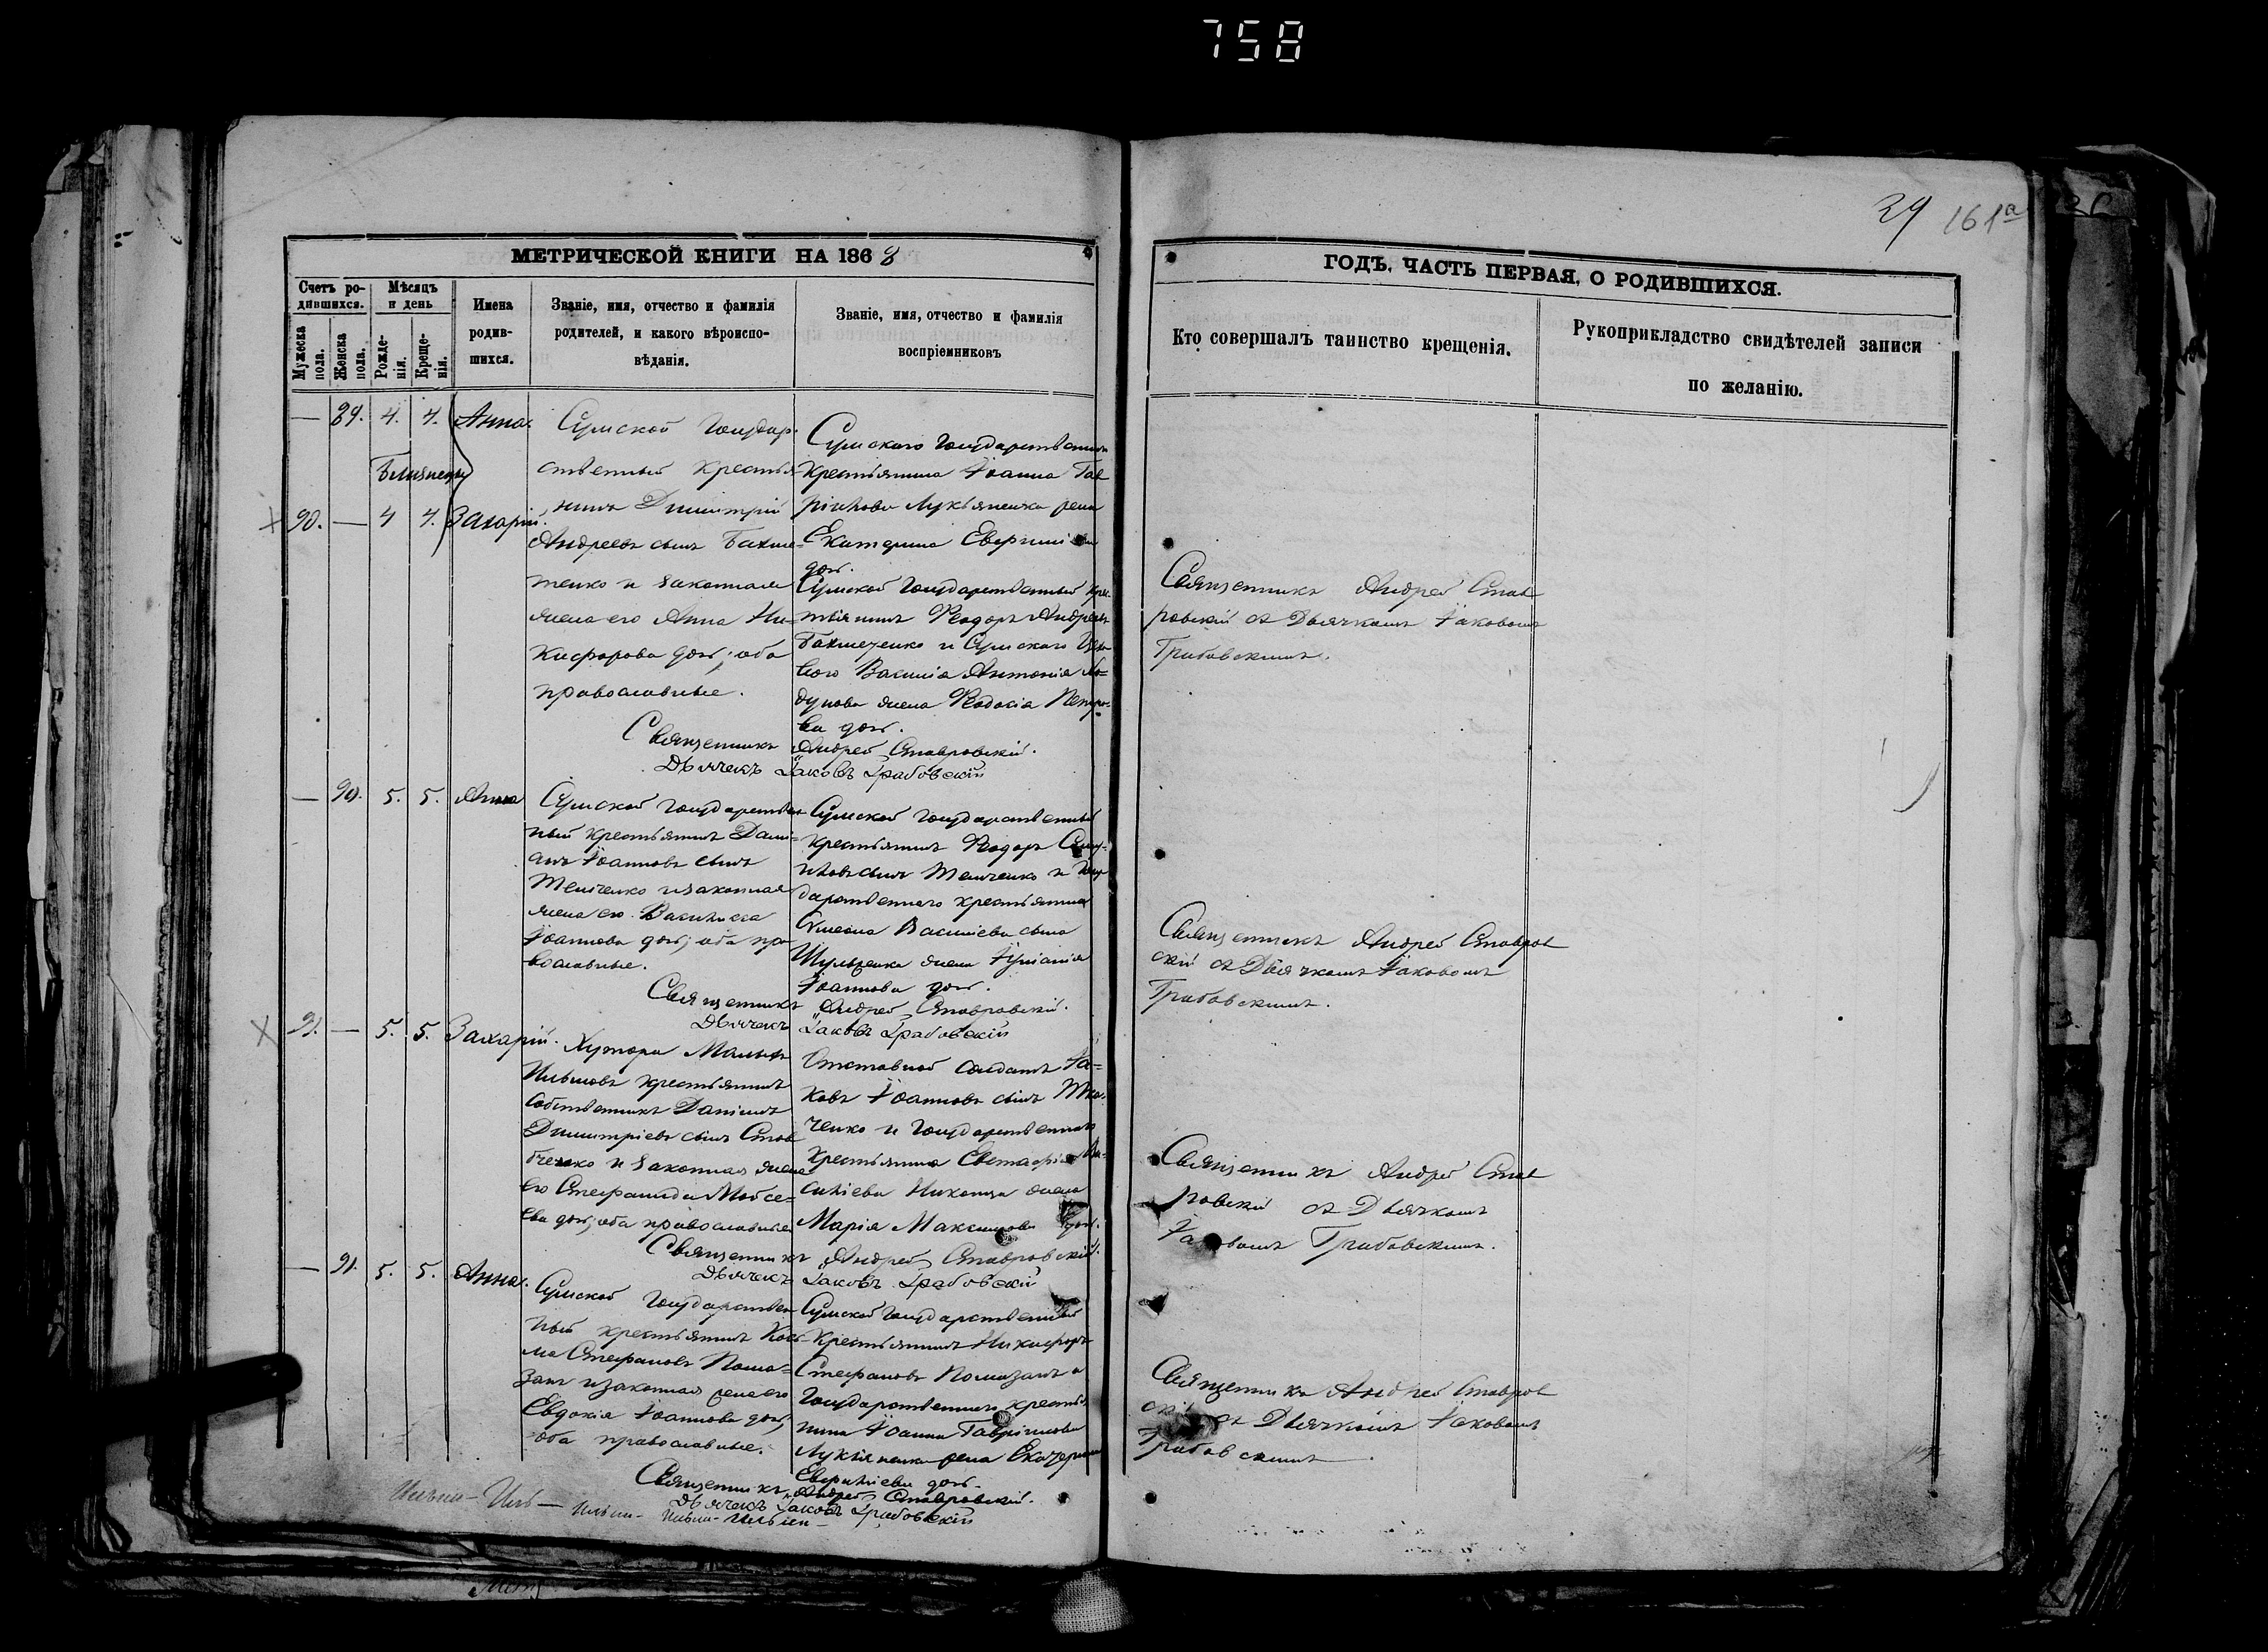 758
29 161а
МЕТРИЧЕСКОЙ КНИГИ НА 1868
ГОДЪ, ЧАСТЬ ПЕРВАЯ, О РОДИВШИХСЯ.
Счетъ ро-
дившихся.
Мужеска пола.
Женска пола.
Мѣсяцъ
и день
Рожде-
нія.
Креще-
нія.
Имена
родив-
шихся.
Званіе, имя, отчество и фамилія
родителей, и какого вѣроиспо-
вѣданія.
Званіе, имя, отчество и фамилія
воспріемниковъ
Кто совершалъ таинство крещенія.
Рукоприкладство свидѣтелей записи
по желанію.
— 89. 4. 4. Анна.
Близнецы
90. — 4 4. Захарій.
Сумской Государ-
ственный крестья-
нинъ Димитрій
Андреевъ сынъ
тенко и законная
жена его Анна Ни-
кифорова доч; оба
православные.
Сумскаго Государственнаго
крестьянина Іоанна Гав
ріилова Лукьяненка жена
Екатерина
доч.
Сумской Государственный крес
тьянинъ Ѳеодоръ Андреевъ
и Сумскаго
Василія Антонія
жена Ѳеодосія Петро-
ва доч.
Священникъ Андрей Ставровскій.
Дьячекъ Іаковъ Грабовскій
Священникъ Андрей Став
ровскій съ Дьячкомъ Іаковомъ
Грабовскимъ.
— 90. 5. 5. Анна
Сумской Государствен-
ный крестьянинъ Дані-
илъ Іоанновъ сынъ
и законная
жена его Василиса
Іоаннова доч; оба пра
вославные.
Сумской Государственный
крестьянинъ Ѳеодоръ
сынъ и Госу
дарственнаго крестьянина
Симеона Василіева сына
жена Іуліанія
Іоаннова доч.
Священникъ Андрей Ставровскій.
Дьячекъ Іаковъ Грабовскій
Священникъ Андрей Ставров
скій съ Дьячкомъ Іаковомъ
Грабовскимъ.
91. — 5. 5. Захарій.
Хутора
крестьянинъ
собственникъ Даніилъ
Димитріевъ сынъ
и законная жена
его Стефанида Моѵсе-
ева доч; оба православные
Отставной солдатъ Іа-
ковъ Іоанновъ сынъ Тка-
ченко и Государственнаго
крестьянина Ва-
силіева жена
Марія Максимова доч.
Священникъ Андрей Ставровскій.
Дьячекъ Іаковъ Грабовскій
Священникъ Андрей Став
ровскій съ Дьячкомъ
Іаковомъ Грабовскимъ.
— 91. 5. 5. Анна.
Сумской Государствен
ный крестьянинъ Косъ-
ма Стефановъ Пома-
занъ и законная жена его
Евдокія Іоаннова доч;
оба православные.
Сумской Государственный
крестьянинъ Никифоръ
Стефановъ Помазанъ и
Государственнаго крестья
нина Іоанна Гавріилова
Лукьяненка жена Екатерина
доч.
Священникъ Андрей Ставровскій.
Дьячекъ Іаковъ Грабовскій
Священникъ Андрей Ставров
скій съ Дьячкомъ Іаковомъ
Грабовскимъ